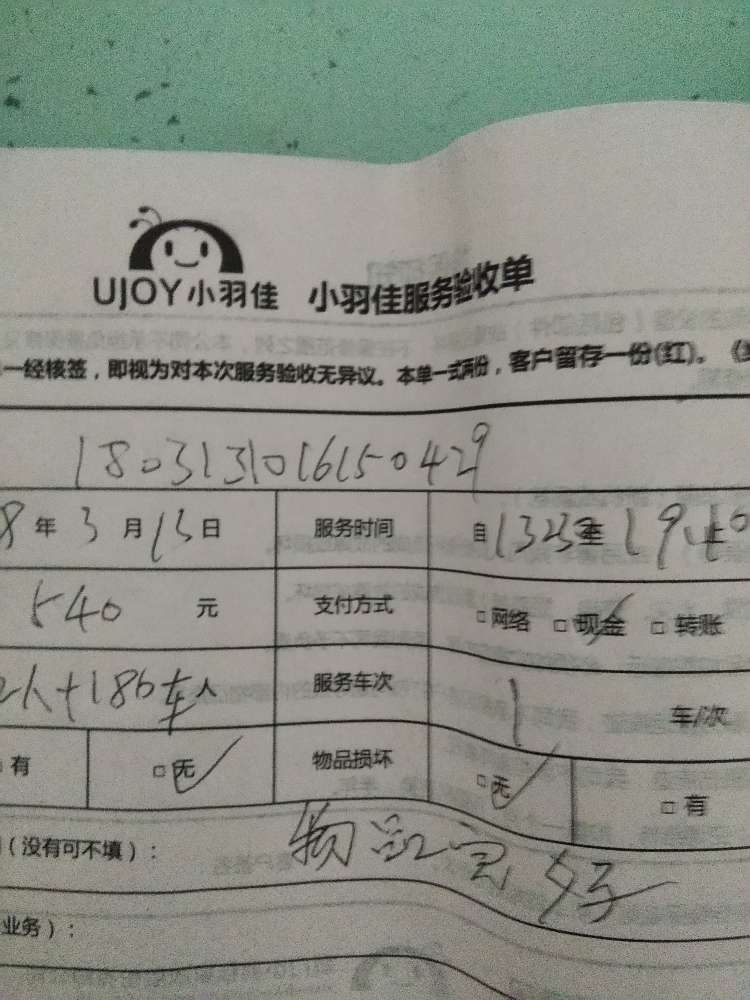 UJOY小羽佳 小羽佳服务验收单
一经核签，即视为对本次服务验收无异议。本单一式两份，客户留存一份(红)。
1803131016150429
8 年 3 月 13 日 服务时间 自 1323 至 19
540 元 支付方式 □网络 □现金 □转账
2人+186车 人 服务车次 1 车/次
□有 □无 物品损坏 □无 □有
（没有可不填）： 物品完好
业务）：